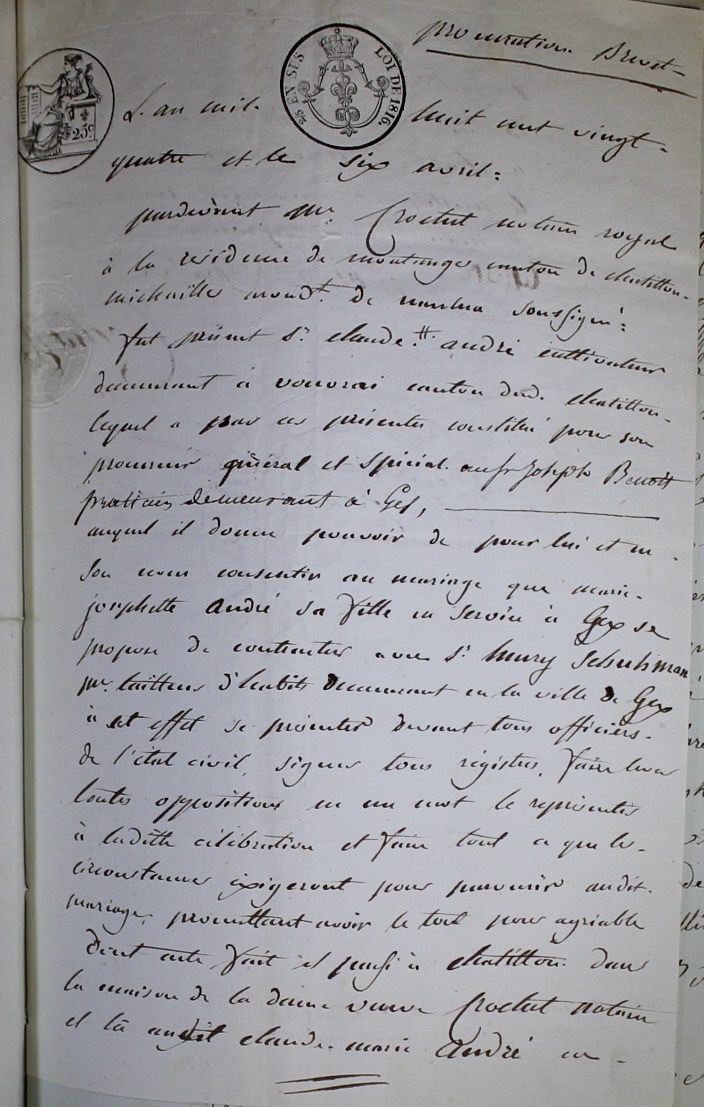 procuration Brevet
EN SUS LOI DE 1816.
25c
L'an mil huit cent vingt-
quatre et le six avril:
pardevant me. Crochet notaire royal
à la residence de montange canton de chatillon-
michaille arrondt. de nantua soussigné:
fut présent sr. claude # andré cultivateur
demeurant à vouvrai canton dud. chatillon-
lequel a par ces présentes constitué pour son
procureur général et spécial. au sr Joseph Benoit
praticien demeurant à Gex,
auquel il donne pouvoir de pour lui et en
son nom consentir au mariage que marie-
josephette andré sa fille en service à Gex se
propose de contracter avec sr. henry Schuhman
me. tailleur d'habits demeurant en la ville de Gex
à cet effet se présenter devant tous officiers-
de l'état civil, signer tous régistres, faire lever
toutes oppositions en un mot le représenter
à laditte célébration et faire tout ce que les-
circonstances éxigeront pour parvenir audit.
mariage, promettant avoir le tout pour agréable
Dont acte fait et passé à chatillon dans
la maison de la dame veuve Crochet notaire
et là audit claude-marie andré en